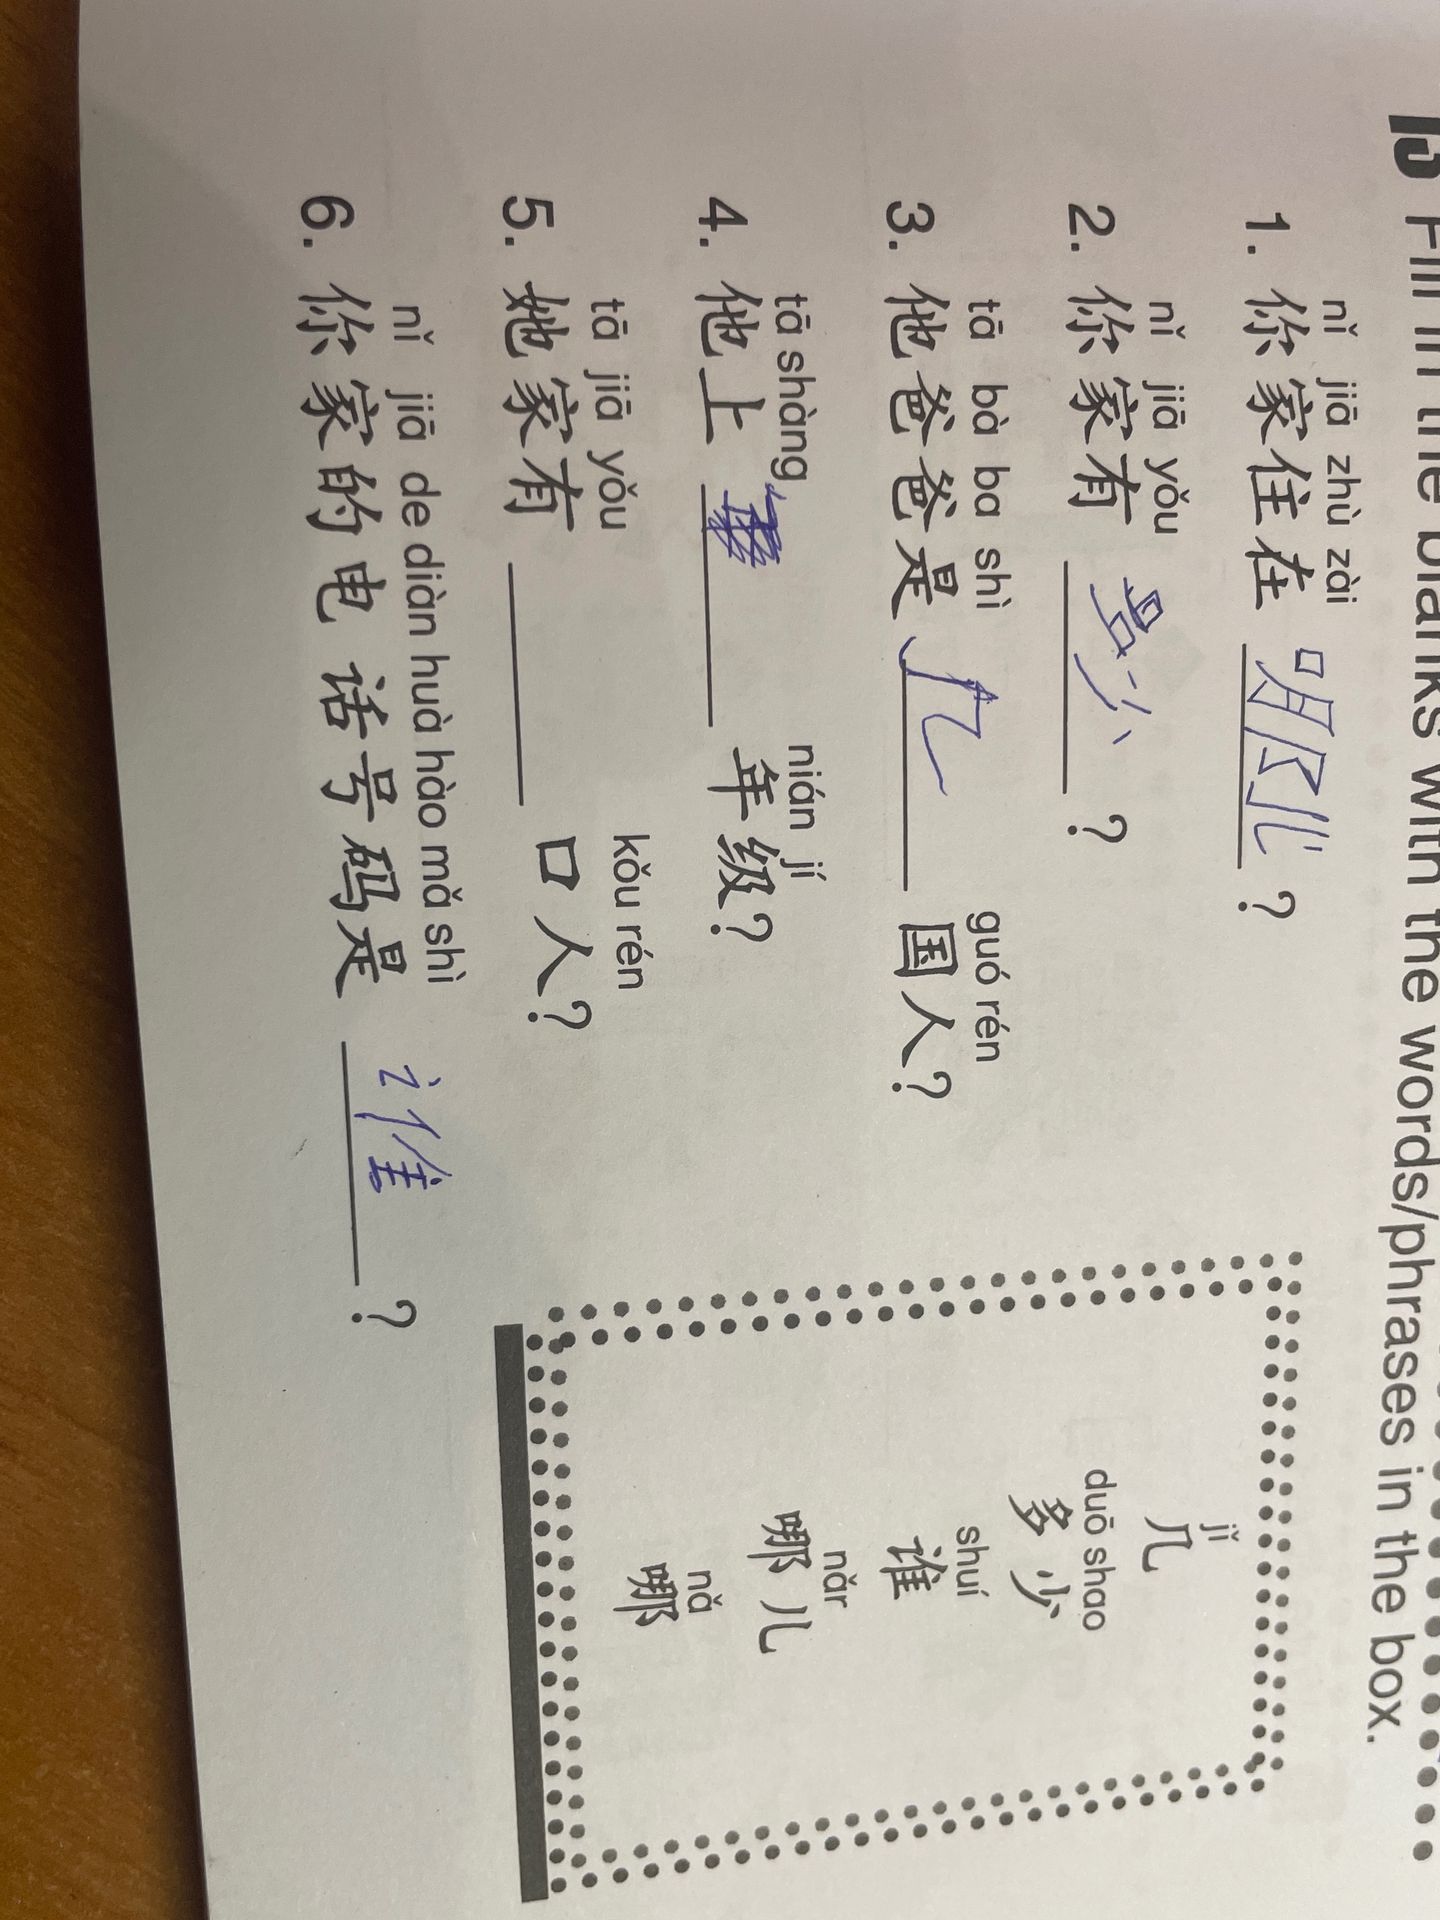 Fill in the blanks with the words/phrases in the box.
nǐ jiā zhù zài
1. 你家住在 哪儿 ?
nǐ jiā yǒu
2. 你家有 多少 ?
tā bà ba shì guó rén
3. 他爸爸是 几 国人?
tā shàng nián jí
4. 他上 年级?
tā jiā yǒu kǒu rén
5. 她家有 口人?
nǐ jiā de diàn huà hào mǎ shì
6. 你家的电话号码是 谁 ?
jǐ
几
duō shao
多少
shuí
谁
nǎr
哪儿
nǎ
哪